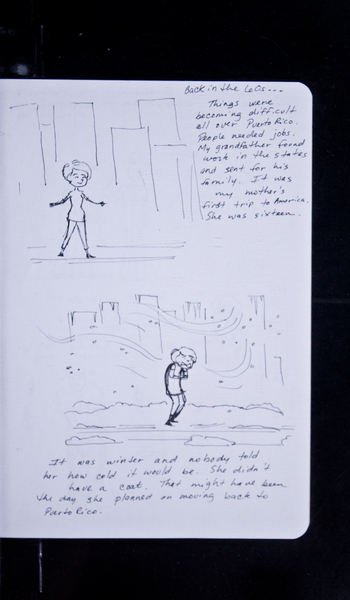 Back in the 60s...
Things were
becoming difficult
all over Puerto Rico.
People needed jobs.
My grandfather found
work in the states
and sent for his
family. It was
my mother's
first trip to America.
She was sixteen.
It was winter and nobody told
her how cold it would be. She didn't
have a coat. That might have been
the day she planned on moving back to
Puerto Rico.